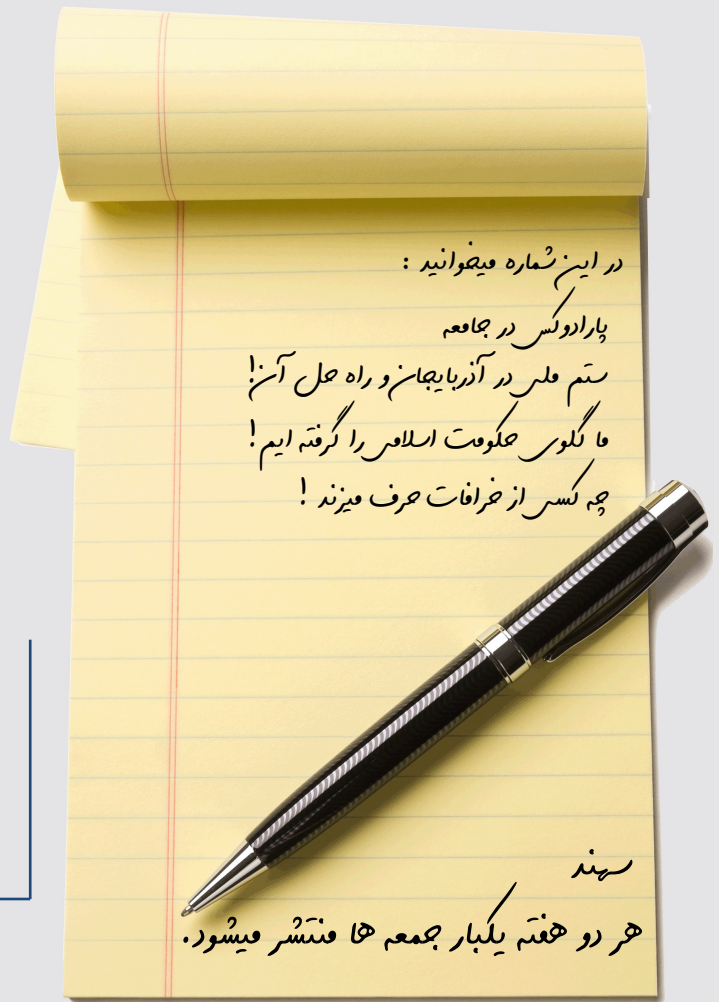 در این شماره میخوانید :
پارادوکس در جامعه
ستم ملی در آذربایجان و راه حل آن!
ما گلوی حکومت اسلامی را گرفته ایم!
چه کسی از خرافات حرف میزند !
سهند
هر دو هفته یکبار جمعه ها منتشر میشود.